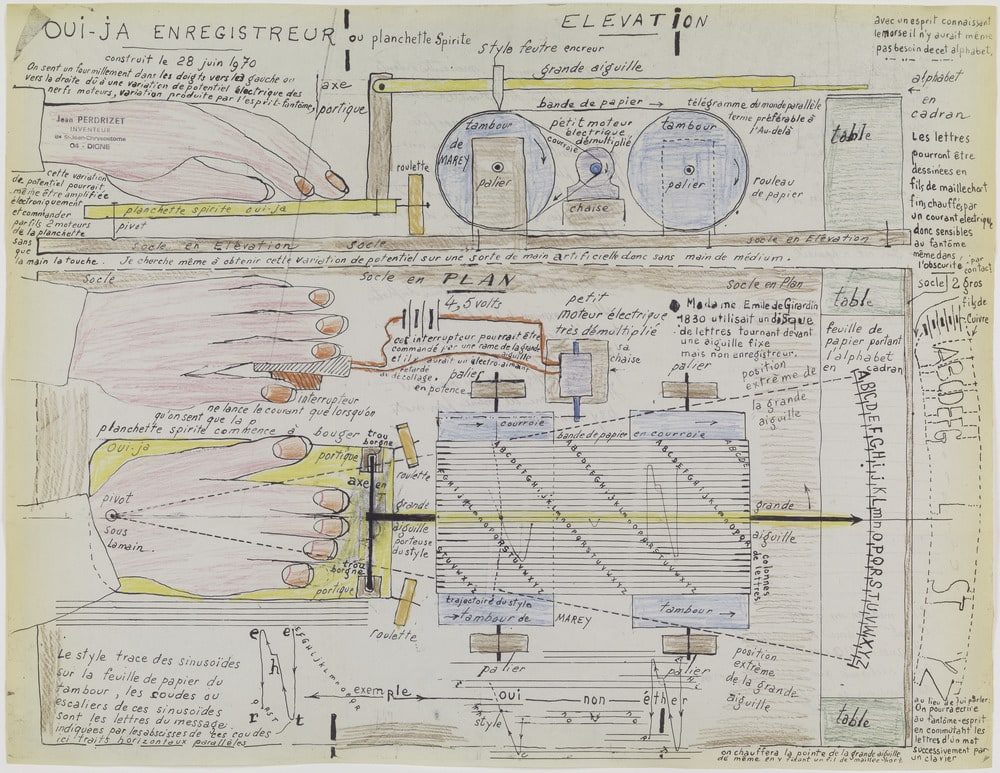 OUI-JA ENREGISTREUR
ou planchette Spirite
ELEVATION
construit le 28 juin 1970
On sent un fourmillement dans les doigts vers la gauche ou
vers la droite dû à une variation de potentiel électrique des
nerfs moteurs, variation produite par l'esprit-fantôme,
Jean PERDRIZET
INVENTEUR
04 - DIGNE
cette variation
de potentiel pourrait
même être amplifiée
électroniquement
et commander
par fils 2 moteurs
de la planchette
sans
que
la main la touche. Je cherche même à obtenir cette variation de potentiel sur une sorte de main artificielle donc sans main de médium.
axe
portique
style feutre encreur
grande aiguille
bande de papier
télégramme du monde parallèle
terme préférable à
l'Au-delà
tambour
de
MAREY
palier
petit moteur
électrique
démultiplié
courroie
chaise
tambour
palier
rouleau
de papier
roulette
planchette spirite oui-ja
pivot
socle en Elévation
socle
socle en Elévation
table
avec un esprit connaissant
le morse il n'y aurait même
pas besoin de cet alphabet.
alphabet
en
cadran
Les lettres
pourront être
dessinées en
fils de maillechort
fins, chauffés par
un courant électrique
donc sensibles
au fantôme
même dans
l'obscurité par
contact
socle
2 gros
fils de
Cuivre
Socle
Socle en PLAN
Socle en Plan
table
4,5 volts
cet interrupteur pourrait être
commandé par une rame de la grande
aiguille
et il y aurait un électro-aimant
retardé
au décollage.
palier
en potence
petit
moteur électrique
très démultiplié
sa
chaise
Madame Emile de Girardin
1830 utilisait un disque
de lettres tournant devant
une aiguille fixe
mais non enregistreur.
palier
position
extrême de
la grande
aiguille
feuille de
papier portant
l'alphabet
en cadran
interrupteur
ne lance le courant que lorsqu'on
qu'on sent que la p
planchette spirite commence à bouger
Oui-ja
trou
borgne
portique
axe en
roulette
pivot
sous
la main.
grande
aiguille
porteuse
du style
trou
borgne
portique
roulette
courroie
bande de papier
en courroie
ABCDEFGHIJKLMNOPQRSTUVWXYZ
grande
aiguille
colonnes
de lettres
trajectoire du style
tambour de MAREY
tambour
palier
palier
position
extrême
de la grande
aiguille
ABCDEFGHIJKLMNOPQRSTUVWXYZ
table
Le style trace des sinusoïdes
sur la feuille de papier du
tambour, les coudes ou
escaliers de ces sinusoïdes
sont les lettres du message,
indiquées par les abscisses de ces coudes
ici traits horizontaux parallèles
e
e
h
r
t
exemple
oui
non
éther
style
au lieu de lui parler
On pourra écrire
au fantôme-esprit
en commutant les
lettres d'un mot
successivement par
un clavier
on chauffera la pointe de la grande aiguille